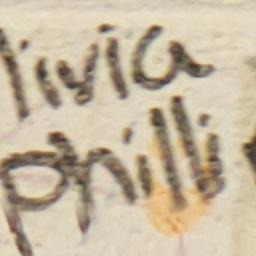 livia
philli